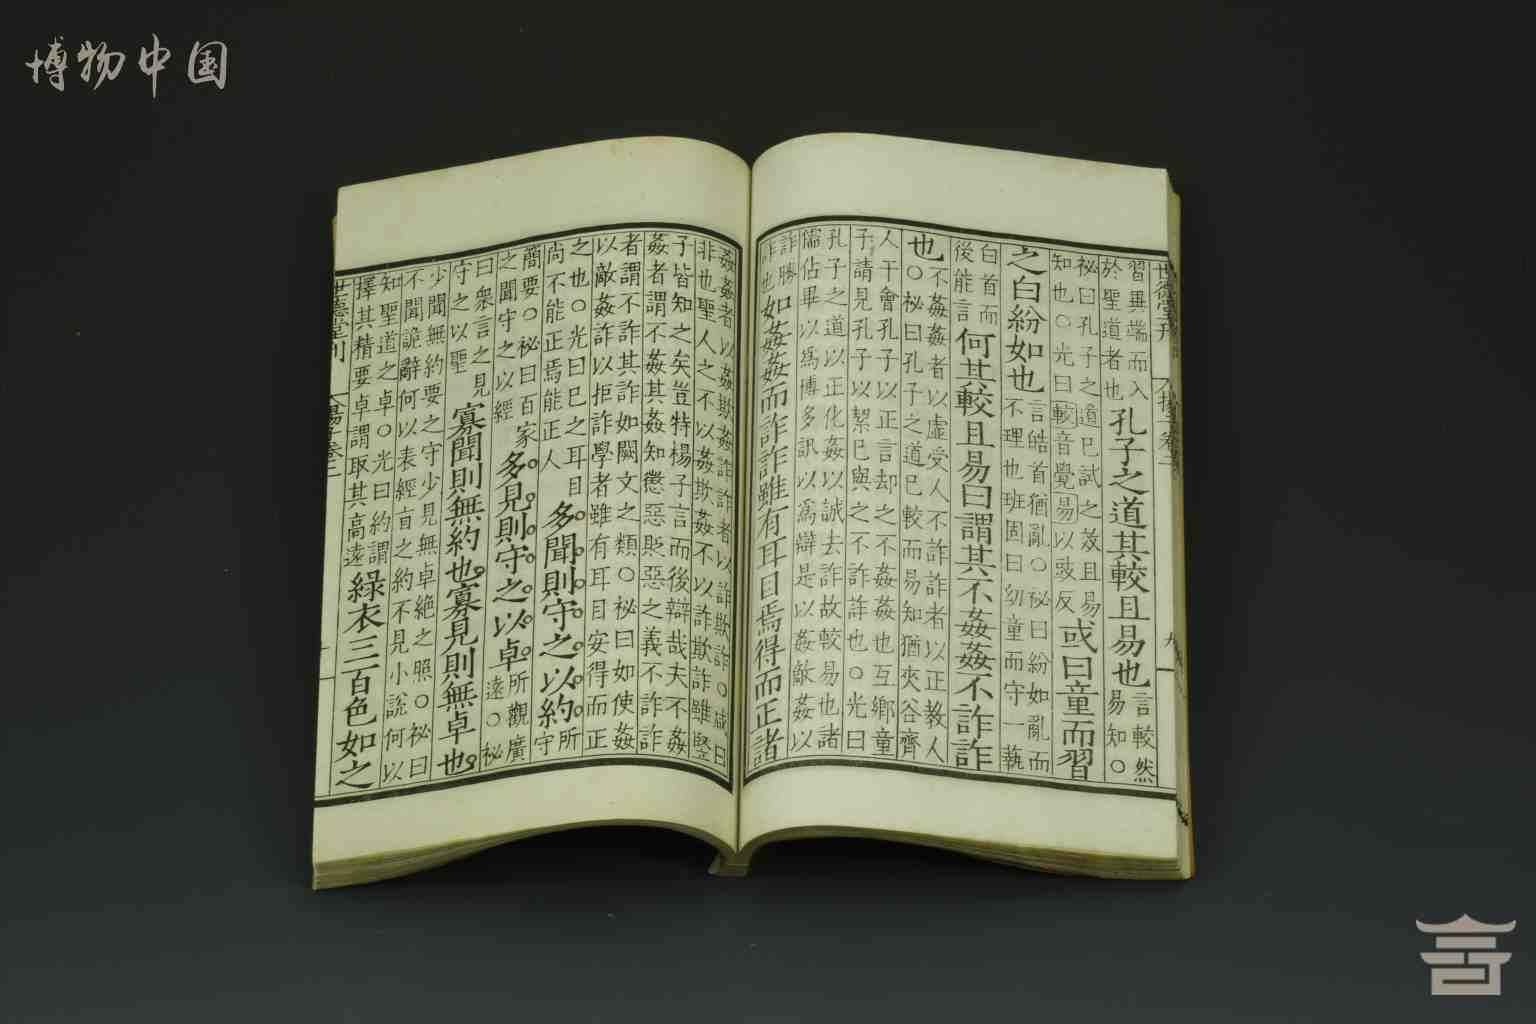 博物中国
世德堂刊
習異端而入
於聖道者也
孔子之道其較且易也
言較然
易知○
祕曰孔子之道已試之效且易
知也○光曰較音覺易以豉反
或曰童而習
之白紛如也
言皓首猶亂○祕曰紛如亂而
不理也班固曰幼童而守一執
白首而
後能言
何其較且易曰謂其不姦姦不詐詐
也
不姦姦者以虛受人不詐詐者以正教人
○祕曰孔子之道已較而易知猶夾谷齊
人干會孔子以正言却之不姦姦也互鄉童
子請見孔子以絜已與之不詐詐也○光曰
孔子之道以正化姦以誠去詐故較易也諸
儒佔畢以爲博多訊以爲辯是以姦敵姦以
詐勝
詐也
如姦姦而詐詐雖有耳目焉得而正諸
姦姦者以姦欺姦詐詐者以詐欺詐○咸曰
非也聖人之不以姦欺姦不以詐欺詐雖堅
子皆知之矣豈特楊子言而後辯哉夫不姦
姦者謂不姦其姦知懲惡貶惡之義不詐詐
者謂不詐其詐如闕文之類○祕曰如使姦
以敵姦詐以拒詐學者雖有耳目安得而正
之也○光曰已之耳目
尚不能正焉能正人
多聞則守之以約
所
守
簡要○祕曰百家
之聞守之以經
多見則守之以卓
所觀廣
遠○祕
曰衆言之見
守之以聖
寡聞則無約也寡見則無卓也
少聞無約要之守少見無卓絕之照○祕曰
不聞詭辭何以表經旨之約不見小說何以
知聖道之卓○光曰約謂
擇其精要卓謂取其高遠
綠衣三百色如之
世德堂刊